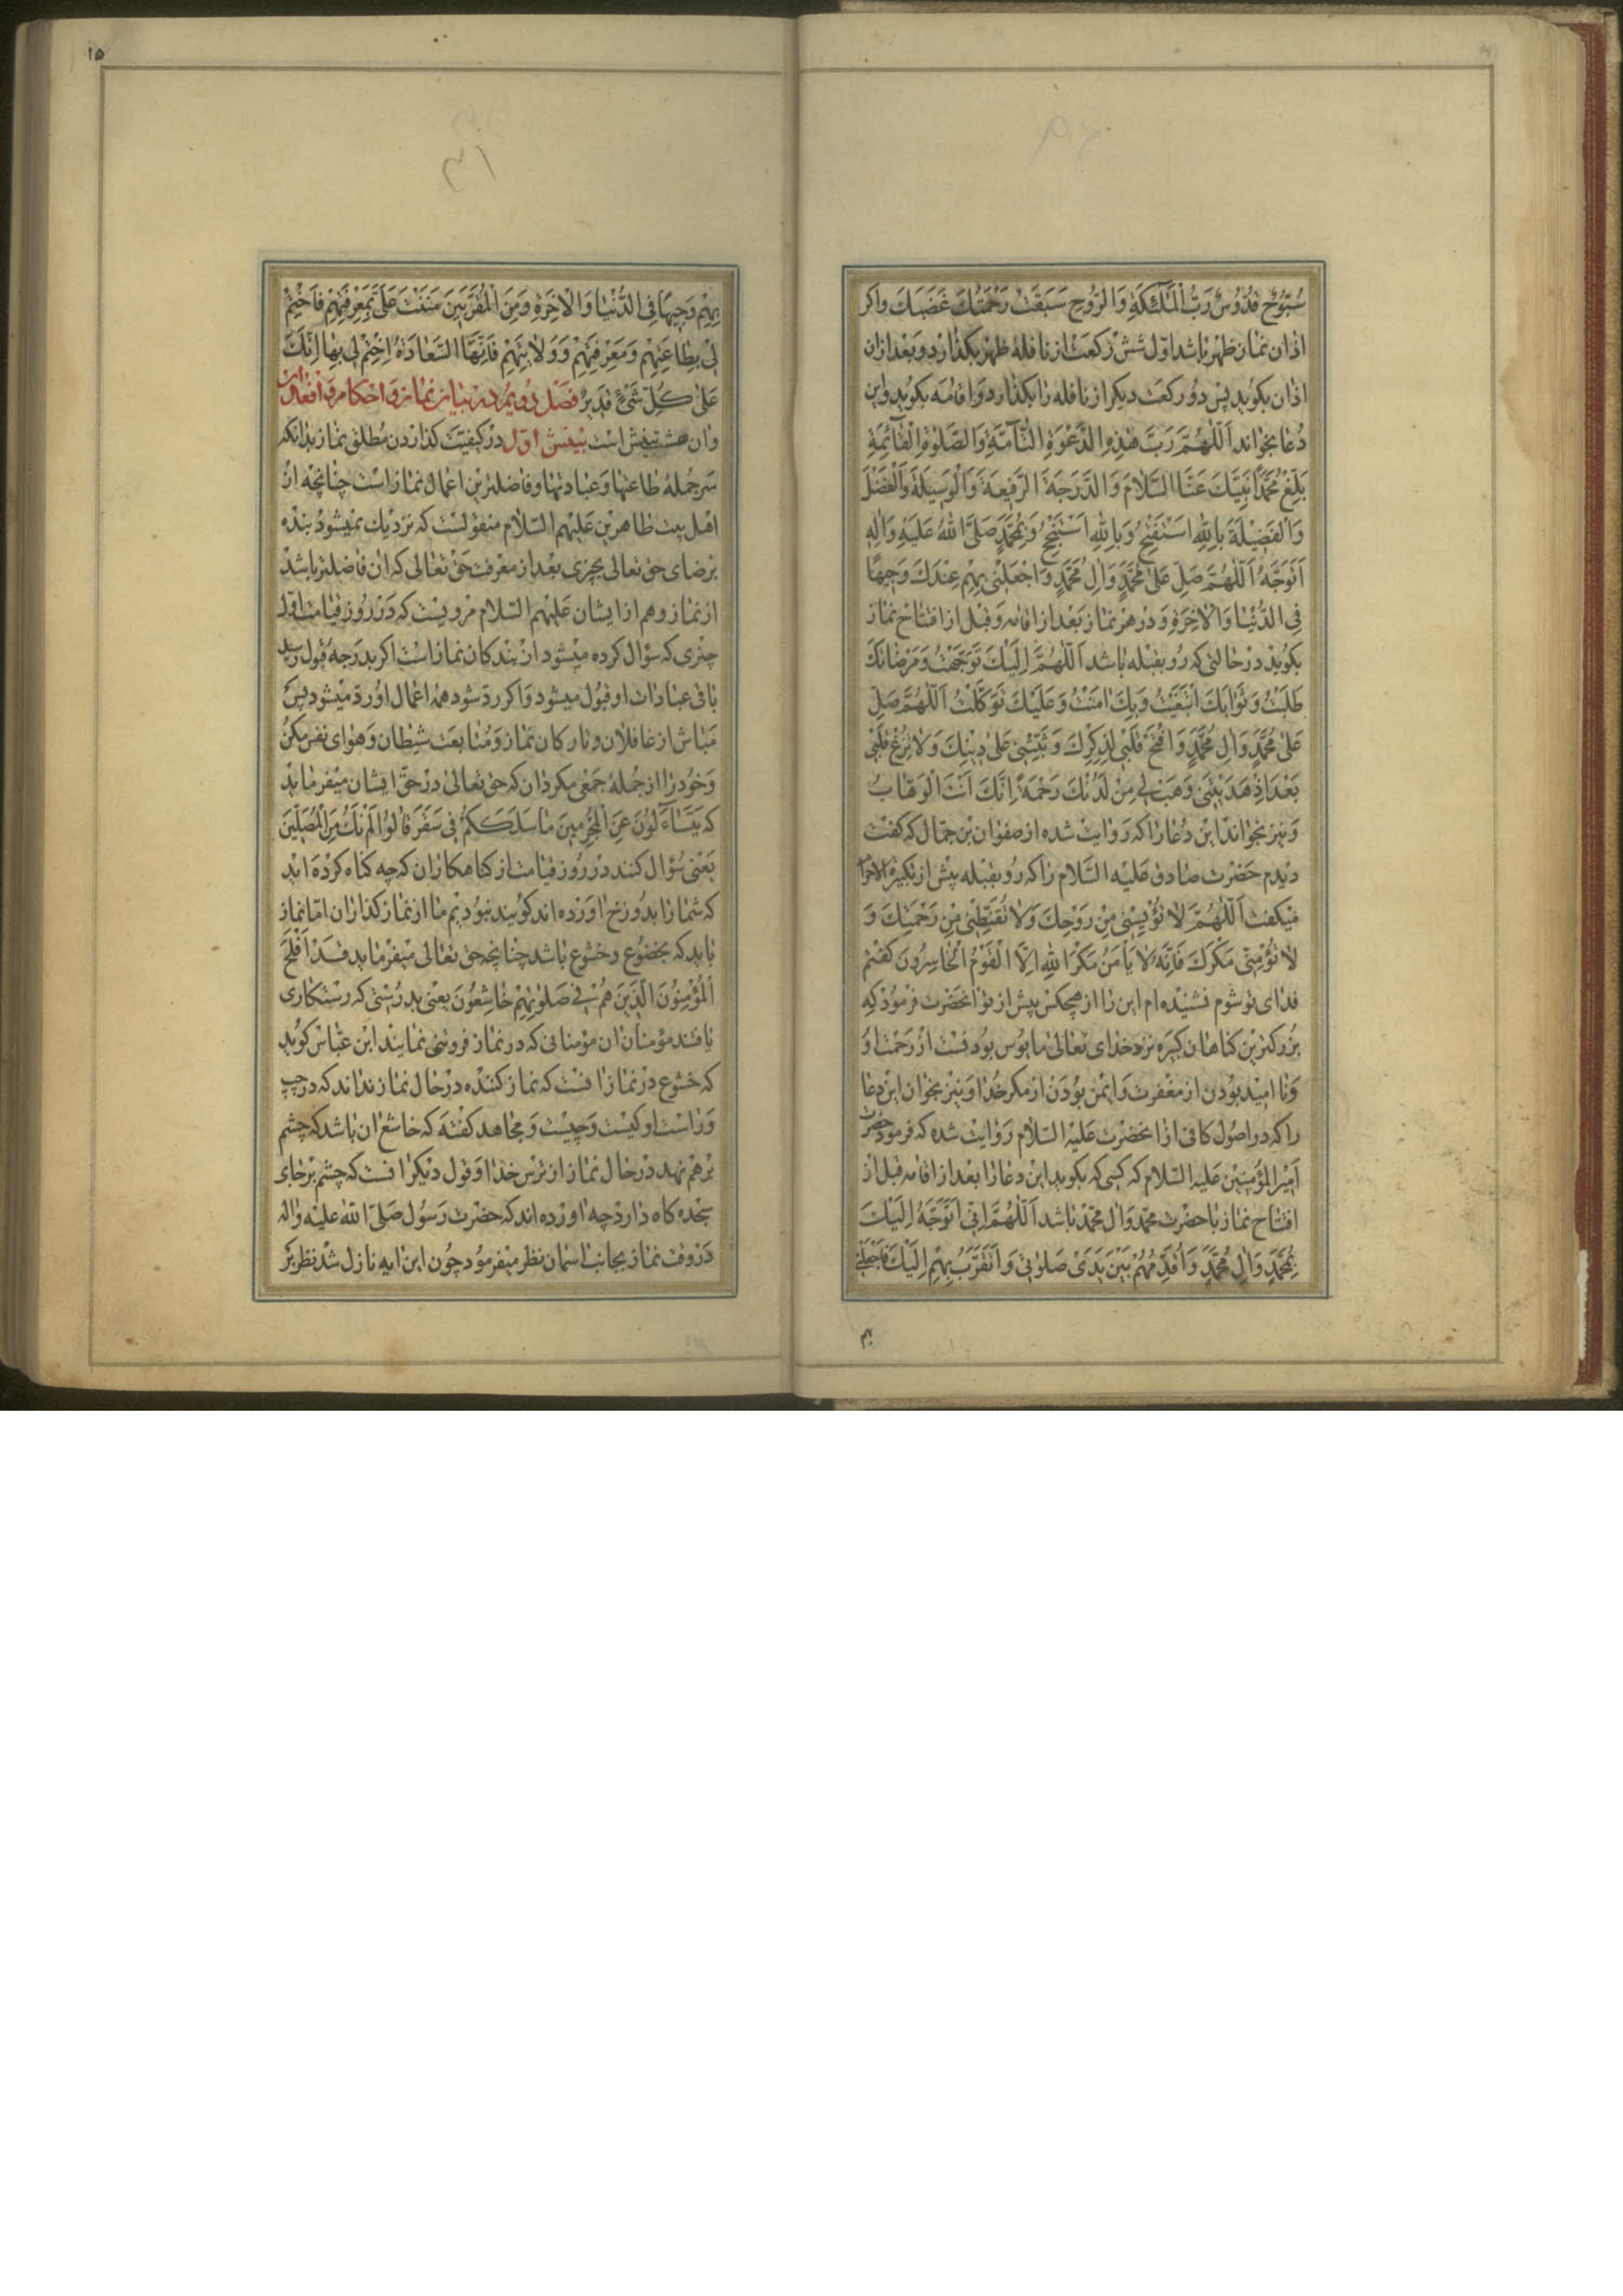 سُبُّوحٌ قُدُّوسٌ رَبُّ الْمَلٰئِكَةِ وَالرُّوحِ سَبَقَتْ رَحْمَتُكَ غَضَبَكَ واکر
اذان نماز ظهر باشد اول شش رکعت از نافلهٔ ظهر بکذارد و بعد ازان
اذان بکوید پس دو رکعت دیکر از نافله را بکذارد و اقامه بکوید و این
دعا بخواند اَللّٰهُمَّ رَبَّ هٰذِهِ الدَّعْوَةِ التَّآمَّةِ وَالصَّلٰوةِ الْقَآئِمَةِ
بَلِّغْ مُحَمَّدًا نَبِيَّكَ عَنَّا السَّلَامَ وَالدَّرَجَةَ الرَّفِيعَةَ وَالْوَسِيلَةَ وَالْفَضْلَ
وَالْفَضِيلَةَ بِاللّٰهِ اَسْتَفْتِحُ وَبِاللّٰهِ اَسْتَنْجِحُ وَبِمُحَمَّدٍ صَلَّى اللّٰهُ عَلَيْهِ وَاٰلِهِ
اَتَوَجَّهُ اَللّٰهُمَّ صَلِّ عَلٰى مُحَمَّدٍ وَاٰلِ مُحَمَّدٍ وَاجْعَلْنِى بِهِمْ عِنْدَكَ وَجِيهًا
فِى الدُّنْيَا وَالْاٰخِرَةِ و در هر نماز بعد از اقامه و قبل از افتتاح نماز
بکوید در حالتی که رو بقبله باشد اَللّٰهُمَّ اِلَيْكَ تَوَجَّهْتُ وَمَرْضَاتَكَ
طَلَبْتُ وَثَوَابَكَ ابْتَغَيْتُ وَبِكَ اٰمَنْتُ وَعَلَيْكَ تَوَكَّلْتُ اَللّٰهُمَّ صَلِّ
عَلٰى مُحَمَّدٍ وَاٰلِ مُحَمَّدٍ وَافْتَحْ قَلْبِى لِذِكْرِكَ وَثَبِّتْنِى عَلٰى دِينِكَ وَلَا تُزِغْ قَلْبِى
بَعْدَ اِذْ هَدَيْتَنِى وَهَبْ لِى مِنْ لَدُنْكَ رَحْمَةً اِنَّكَ اَنْتَ الْوَهَّابُ
و نیز بخواند این دعا را که روایت شده از صفوان بن جمال که کفت
دیدم حضرت صادق علیه السلام را که رو بقبله پیش از تکبیرة الاحرام
میکفت اَللّٰهُمَّ لَا تُؤْيِسْنِى مِنْ رَوْحِكَ وَلَا تُقَنِّطْنِى مِنْ رَحْمَتِكَ وَ
لَا تُؤْمِنِّى مَكْرَكَ فَاِنَّهُ لَا يَأْمَنُ مَكْرَ اللّٰهِ اِلَّا الْقَوْمُ الْخَاسِرُونَ کفتم
فدای تو شوم نشنیده ام این را از هیچکس پیش از تو انحضرت فرمود که
بزرکترین کناهان کبیره نزد خدای تعالی مایوس بودنست از رحمت او
و نا امید بودن از مغفرت و ایمن بودن از مکر خدا و نیز بخوان این دعا
را که در اصول کافی از انحضرت علیه السلام روایت شده که فرمود حضرت
امیر المؤمنین علیه السلام که کسی که بکوید این دعا را بعد از اقامه قبل از
افتتاح نماز با حضرت محمد وال محمد باشد اَللّٰهُمَّ اِنِّى اَتَوَجَّهُ اِلَيْكَ
بِمُحَمَّدٍ وَاٰلِ مُحَمَّدٍ وَاُقَدِّمُهُمْ بَيْنَ يَدَىْ صَلٰوتِى وَاَتَقَرَّبُ بِهِمْ اِلَيْكَ فَاجْعَلْنِى
بهم
١٥
٣١
بِهِمْ وَجِيهًا فِى الدُّنْيَا وَالْاٰخِرَةِ وَمِنَ الْمُقَرَّبِينَ مَنَنْتَ عَلَىَّ بِمَعْرِفَتِهِمْ فَاخْتِمْ
لِى بِطَاعَتِهِمْ وَمَعْرِفَتِهِمْ وَوَلَايَتِهِمْ فَاِنَّهَا السَّعَادَةُ اِخْتِمْ لِى بِهَا اِنَّكَ
عَلٰى كُلِّ شَىْءٍ قَدِيرٌ فصل دویم در بیان نماز و احکام و افعال ان
وان هشت بینش است بینش اول در کیفیت کذاردن مطلق نماز بدانکه
سر جملهٔ طاعتها و عبادتها و فاضلترین اعمال نماز است چنانچه از
اهل بیت طاهرین علیهم السلام منقولست که نزدیک نمیشود بنده
برضای حق تعالی بچیزی بعد از معرفت حق تعالی که ان فاضلتر باشد
از نماز و هم از ایشان علیهم السلام مرویست که در روز قیامت اول
چیزی که سؤال کرده میشود از بندکان نماز است اکر بدرجهٔ قبول رسید
باقی عبادات او قبول میشود و اکر رد شود همهٔ اعمال او رد میشود پس
مباش از غافلان و تارکان نماز و متابعت شیطان و هوای نفس مکن
و خود را از جملهٔ جمعی مکردان که حق تعالی در حق ایشان میفرماید
که يَتَسَآءَلُونَ عَنِ الْمُجْرِمِينَ مَا سَلَكَكُمْ فِى سَقَرَ قَالُوا لَمْ نَكُ مِنَ الْمُصَلِّينَ
یعنی سؤال کنند در روز قیامت از کناهکاران که چه کناه کرده اید
که شما را بدوزخ اورده اند کویند نبودیم ما از نماز کذاران اما نماز
باید که بخضوع و خشوع باشد چنانچه حق تعالی میفرماید قَدْ اَفْلَحَ
الْمُؤْمِنُونَ الَّذِينَ هُمْ فِى صَلٰوتِهِمْ خَاشِعُونَ یعنی بدرستی که رستکاری
یافتند مؤمنان ان مؤمنانی که در نماز فروتنی نمایند ابن عباس کوید
که خشوع در نماز انست که نماز کننده در حال نماز نداند که در چپ
و راست او کیست و چیست و مجاهد کفته که خاشع ان باشد که چشم
بر هم نهد در حال نماز از ترس خدا و قول دیکر انست که چشم بر جای
سجده کاه دارد چه اورده اند که حضرت رسول صلی الله علیه واله
در وقت نماز بجانب اسمان نظر میفرمود چون این ایه نازل شد نظر بر